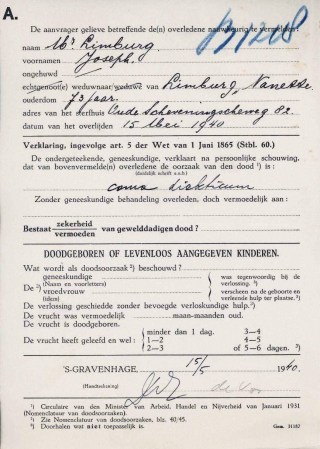 A.
De aanvrager gelieve betreffende de(n) overledene nauwkeurig te vermelden:
B 1268
naam Mr Limburg.
voornamen Joseph.
ongehuwd
echtgenoot(e) weduwnaar, weduwe van Limburg, Nanette.
ouderdom 73 jaar.
adres van het sterfhuis Oude Scheveningscheweg 82
datum van het overlijden 15 Mei 1940
Verklaring, ingevolge art. 5 der Wet van 1 Juni 1865 (Stbl. 60.)
De ondergeteekende, geneeskundige, verklaart na persoonlijke schouwing,
dat van bovenvermeld(e) overledene de oorzaak van den dood ¹) is:
(duidelijk schrift s.v.p.)
coma
Zonder geneeskundige behandeling overleden, doch vermoedelijk aan:
Bestaat zekerheid
vermoeden van gewelddadigen dood?
DOODGEBOREN OF LEVENLOOS AANGEGEVEN KINDEREN.
Wat wordt als doodsoorzaak ²) beschouwd?
De ³) geneeskundige
(Naam en voorletters)
vroedvrouw
(idem)
was tegenwoordig bij de
verlossing. ³)
verscheen na de geboorte en
verleende hulp ter plaatse. ³)
De verlossing geschiedde zonder bevoegde verloskundige hulp. ³)
De vrucht was vermoedelijk maan-maanden oud.
De vrucht is doodgeboren.
De vrucht heeft geleefd en wel:
minder dan 1 dag. 3—4
1—2 4—5
2—3 of 5—6 dagen. ³)
'S-GRAVENHAGE, 15/5 1940.
(Handteekening)
de Vos
¹) Circulaire van den Minister van Arbeid, Handel en Nijverheid van Januari 1931
(Nomenclatuur van doodsoorzaken).
²) Zie Nomenclatuur van doodsoorzaken, blz. 40/45.
³) Doorhalen wat niet toepasselijk is.
Gem. 31187